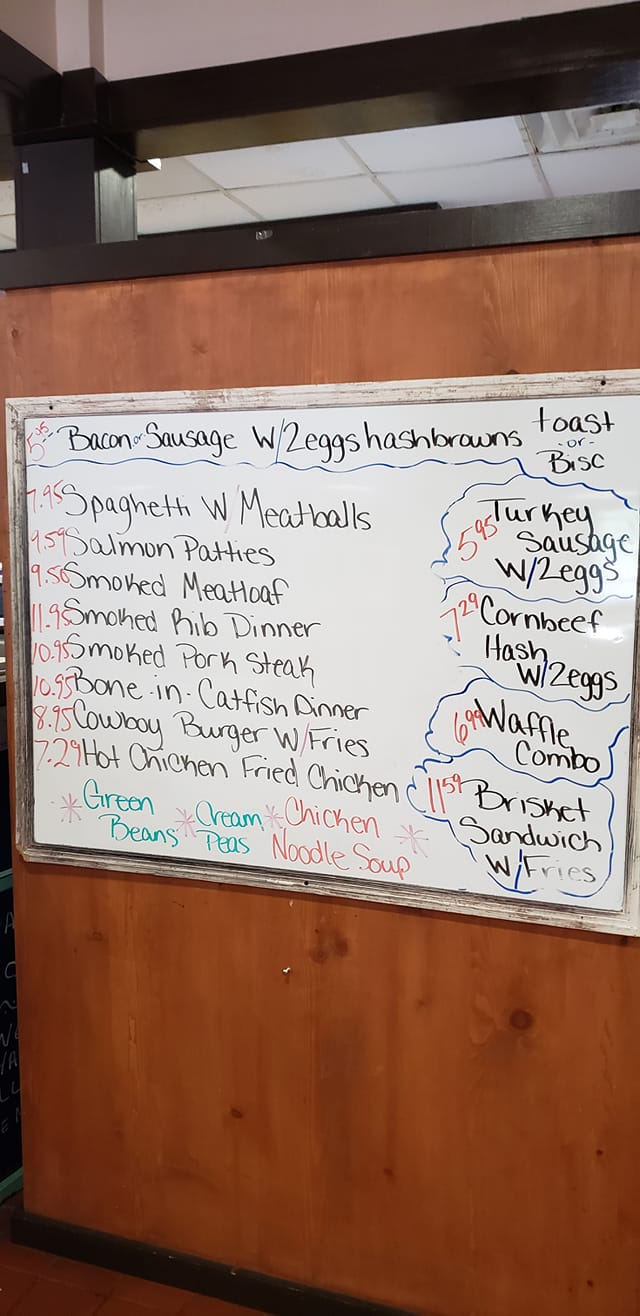 5.95 Bacon or Sausage W/2eggs hashbrowns toast
-or-
Bisc
7.95 Spaghetti W/Meatballs
9.59 Salmon Patties
9.50 Smoked Meatloaf
11.95 Smoked Rib Dinner
10.95 Smoked Pork Steak
10.95 Bone-in-Catfish Dinner
8.95 Cowboy Burger W/Fries
7.29 Hot Chicken Fried Chicken
* Green
Beans
* Cream
Peas
* Chicken *
Noodle Soup
5.95 Turkey
Sausage
W/2eggs
7.29 Cornbeef
Hash
W/2eggs
6.99 Waffle
Combo
11.59 Brisket
Sandwich
W/Fries